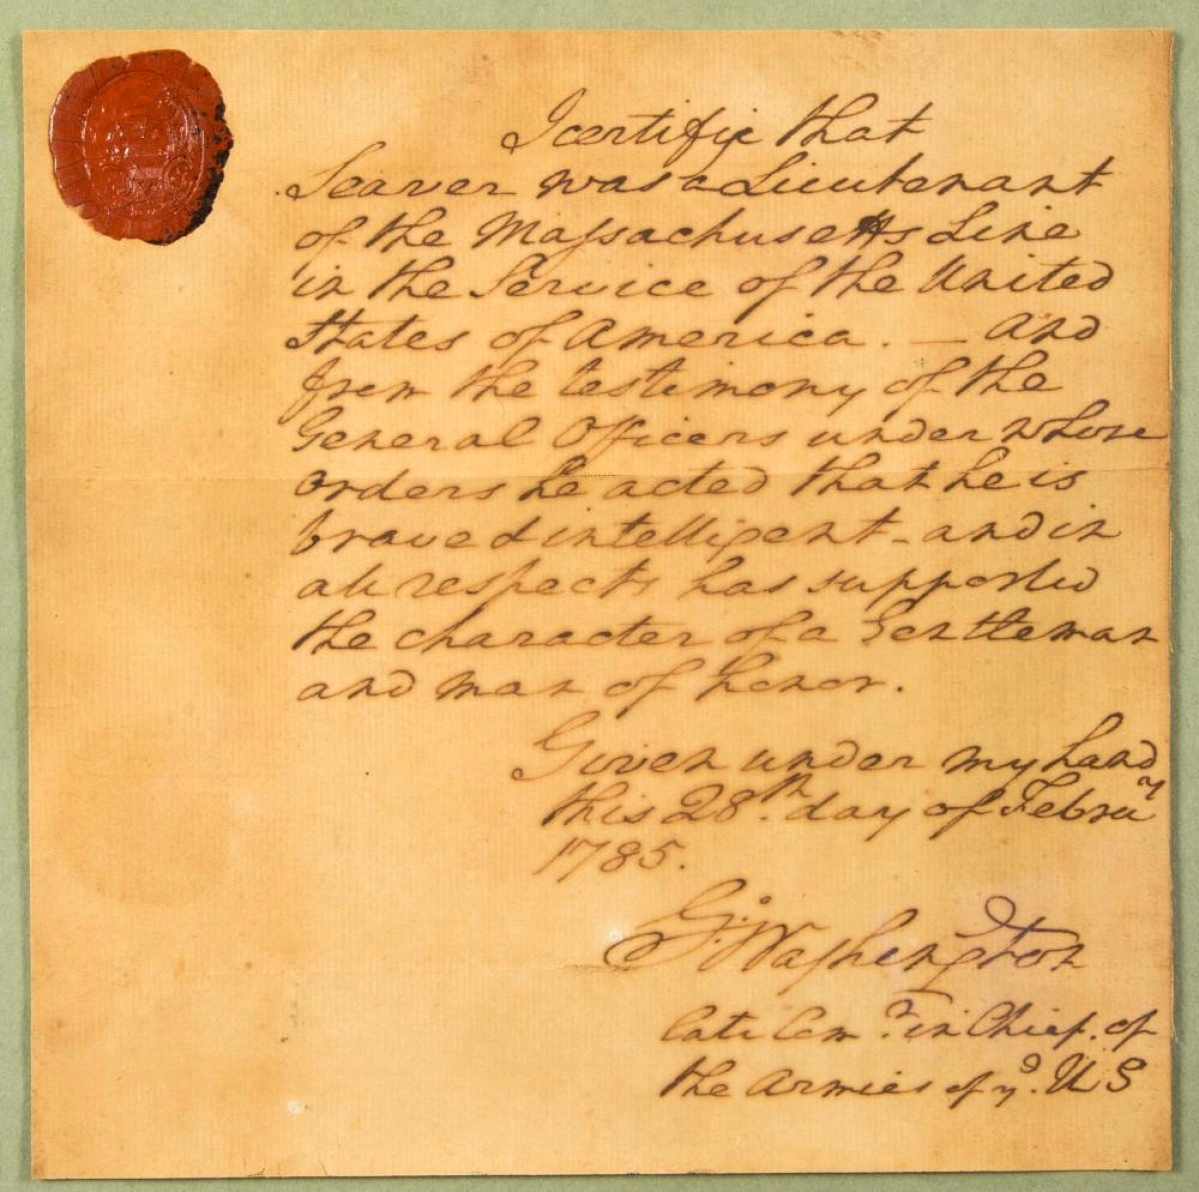 I certifie that
Seaver was a Lieutenant
of the Massachusetts Line
in the Service of the United
States of America. — and
from the testimony of the
General Officers under whose
orders he acted that he is
brave & intelligent - and in
all respects has supported
the character of a Gentleman
and man of honor.
Given under my hand
this 28th. day of Februay
1785.
Go: Washington
late Comr. in Chief. of
the Armies of yd. U S